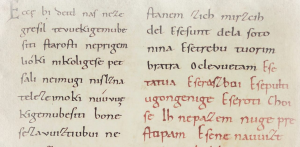 Eccę bi detd naſ neze
greſil te u ueki gemube
ſiti ſtaroſti neprigem
lioki nikoligeſe pet
ſali neimugi niſlzna
teleze moki nu u ueki
gemubeſiti bone
ſe zavuiztiubui ne
ſtanem zich mirzcih
del Eſeſunt dela ſoto
nina Eſetrebu tuorim
bratra Oclevuetam Eſe
tatua Eſerazboi Eſepulti
ugongenige Eſeroti Choi
ſe Ih nepazem nuge pre
ſtopam Eſene nauuiſt